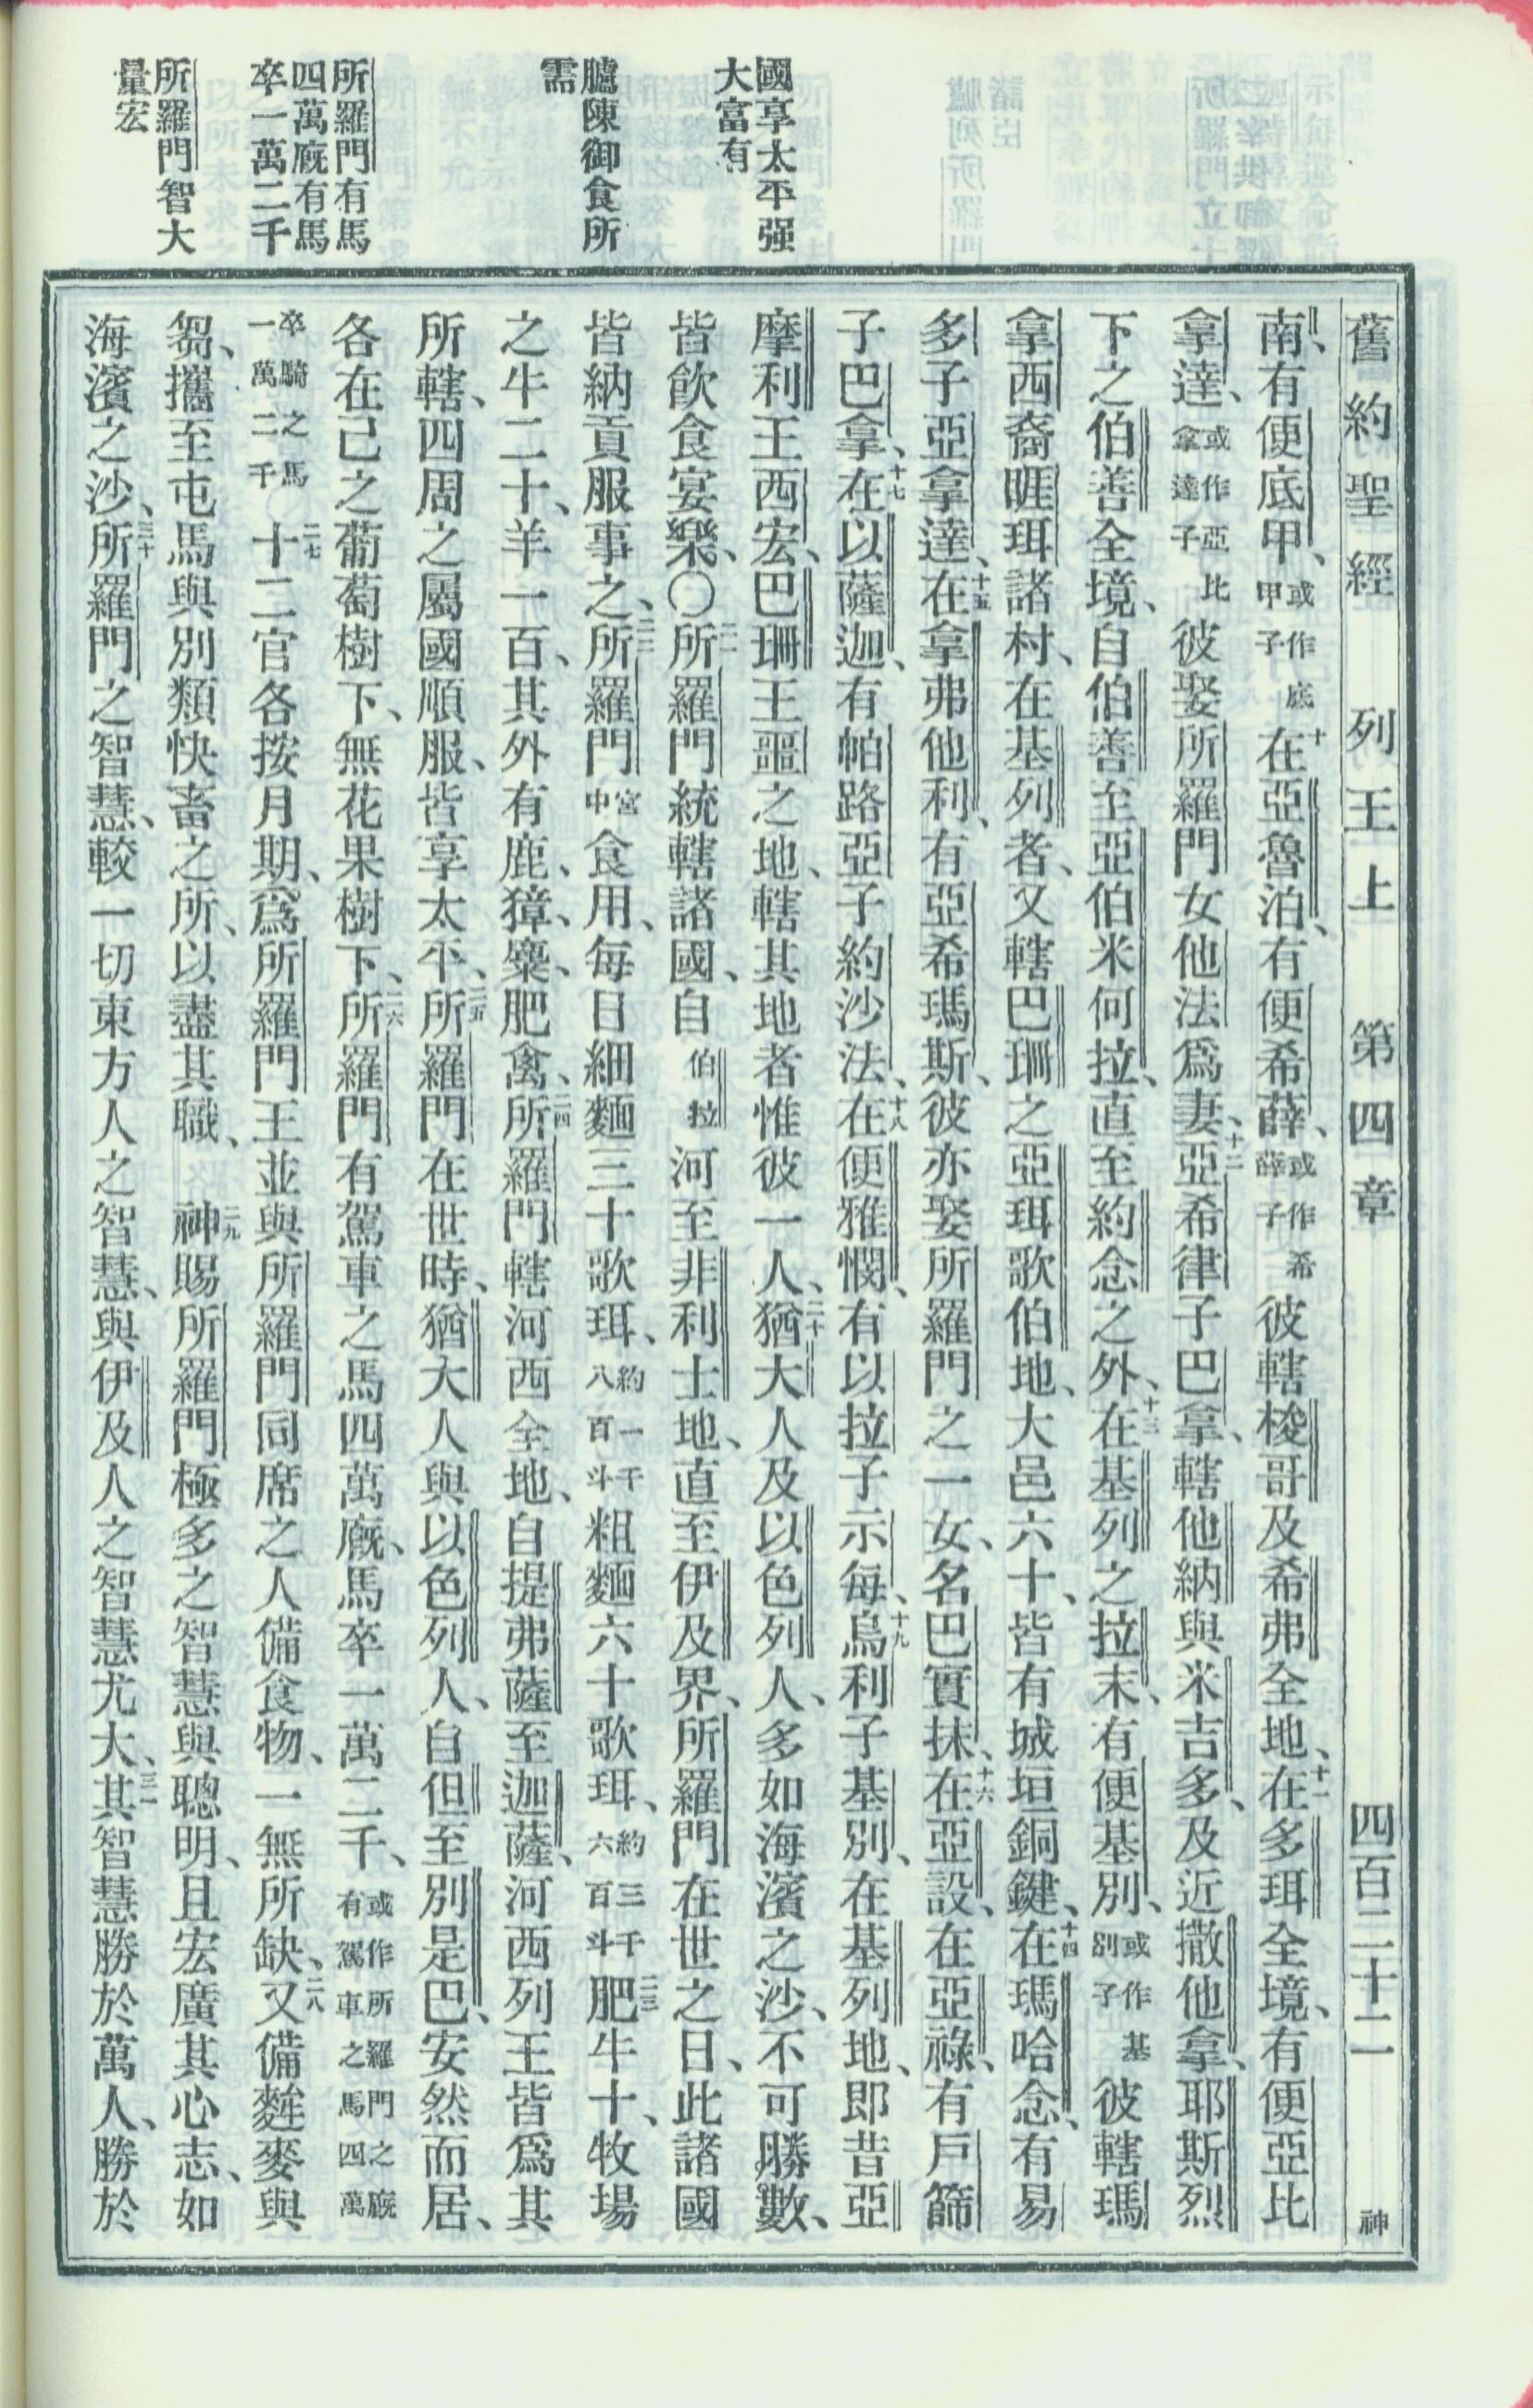 舊約聖經 列王上 第四章 四百二十二 神
國享太平强
大富有
臚陳御食所
需
所羅門有馬
四萬廐有馬
卒一萬二千
所羅門智大
量宏
南、有便底甲、或作底甲子十在亞魯泊、有便希薛、或作希薛子彼轄梭哥及希弗全地、十一在多珥全境、有便亞比
拿達、或作亞比拿達子彼娶所羅門女他法爲妻、十二亞希律子巴拿、轄他納與米吉多、及近撒他拿、耶斯烈
下之伯善全境、自伯善至亞伯米何拉、直至約念之外、十三在基列之拉末、有便基別、或作基別子彼轄瑪
拿西裔睚珥諸村、在基列者、又轄巴珊之亞珥歌伯地、大邑六十、皆有城垣銅鍵、十四在瑪哈念、有易
多子亞拿達、十五在拿弗他利、有亞希瑪斯、彼亦娶所羅門之一女、名巴實抹、十六在亞設、在亞祿、有戶篩
子巴拿、十七在以薩迦、有帕路亞子約沙法、十八在便雅憫、有以拉子示每、十九烏利子基別、在基列地、即昔亞
摩利王西宏、巴珊王噩之地、轄其地者惟彼一人、二十猶大人及以色列人、多如海濱之沙、不可勝數、
皆飮食宴樂、〇二一所羅門統轄諸國、自伯拉河至非利士地、直至伊及界、所羅門在世之日、此諸國
皆納貢服事之、二二所羅門宮中食用、每日細麵三十歌珥、約一千八百斗粗麵六十歌珥、約三千六百斗二三肥牛十、牧場
之牛二十、羊一百、其外有鹿、獐、麋、肥禽、二四所羅門轄河西全地、自提弗薩至迦薩、河西列王皆爲其
所轄、四周之屬國順服、皆享太平、二五所羅門在世時、猶大人與以色列人、自但至別是巴、安然而居、
各在己之葡萄樹下、無花果樹下、二六所羅門有駕車之馬四萬廐、馬卒一萬二千、或作所羅門之廐有駕車之馬四萬
卒騎之馬一萬二千〇二七十二官各按月期、爲所羅門王並與所羅門同席之人備食物、一無所缺、二八又備麰麥與
芻、攜至屯馬與別類快畜之所、以盡其職、二九神賜所羅門極多之智慧與聰明、且宏廣其心志、如
海濱之沙、三十所羅門之智慧、較一切東方人之智慧、與伊及人之智慧尤大、三一其智慧勝於萬人、勝於